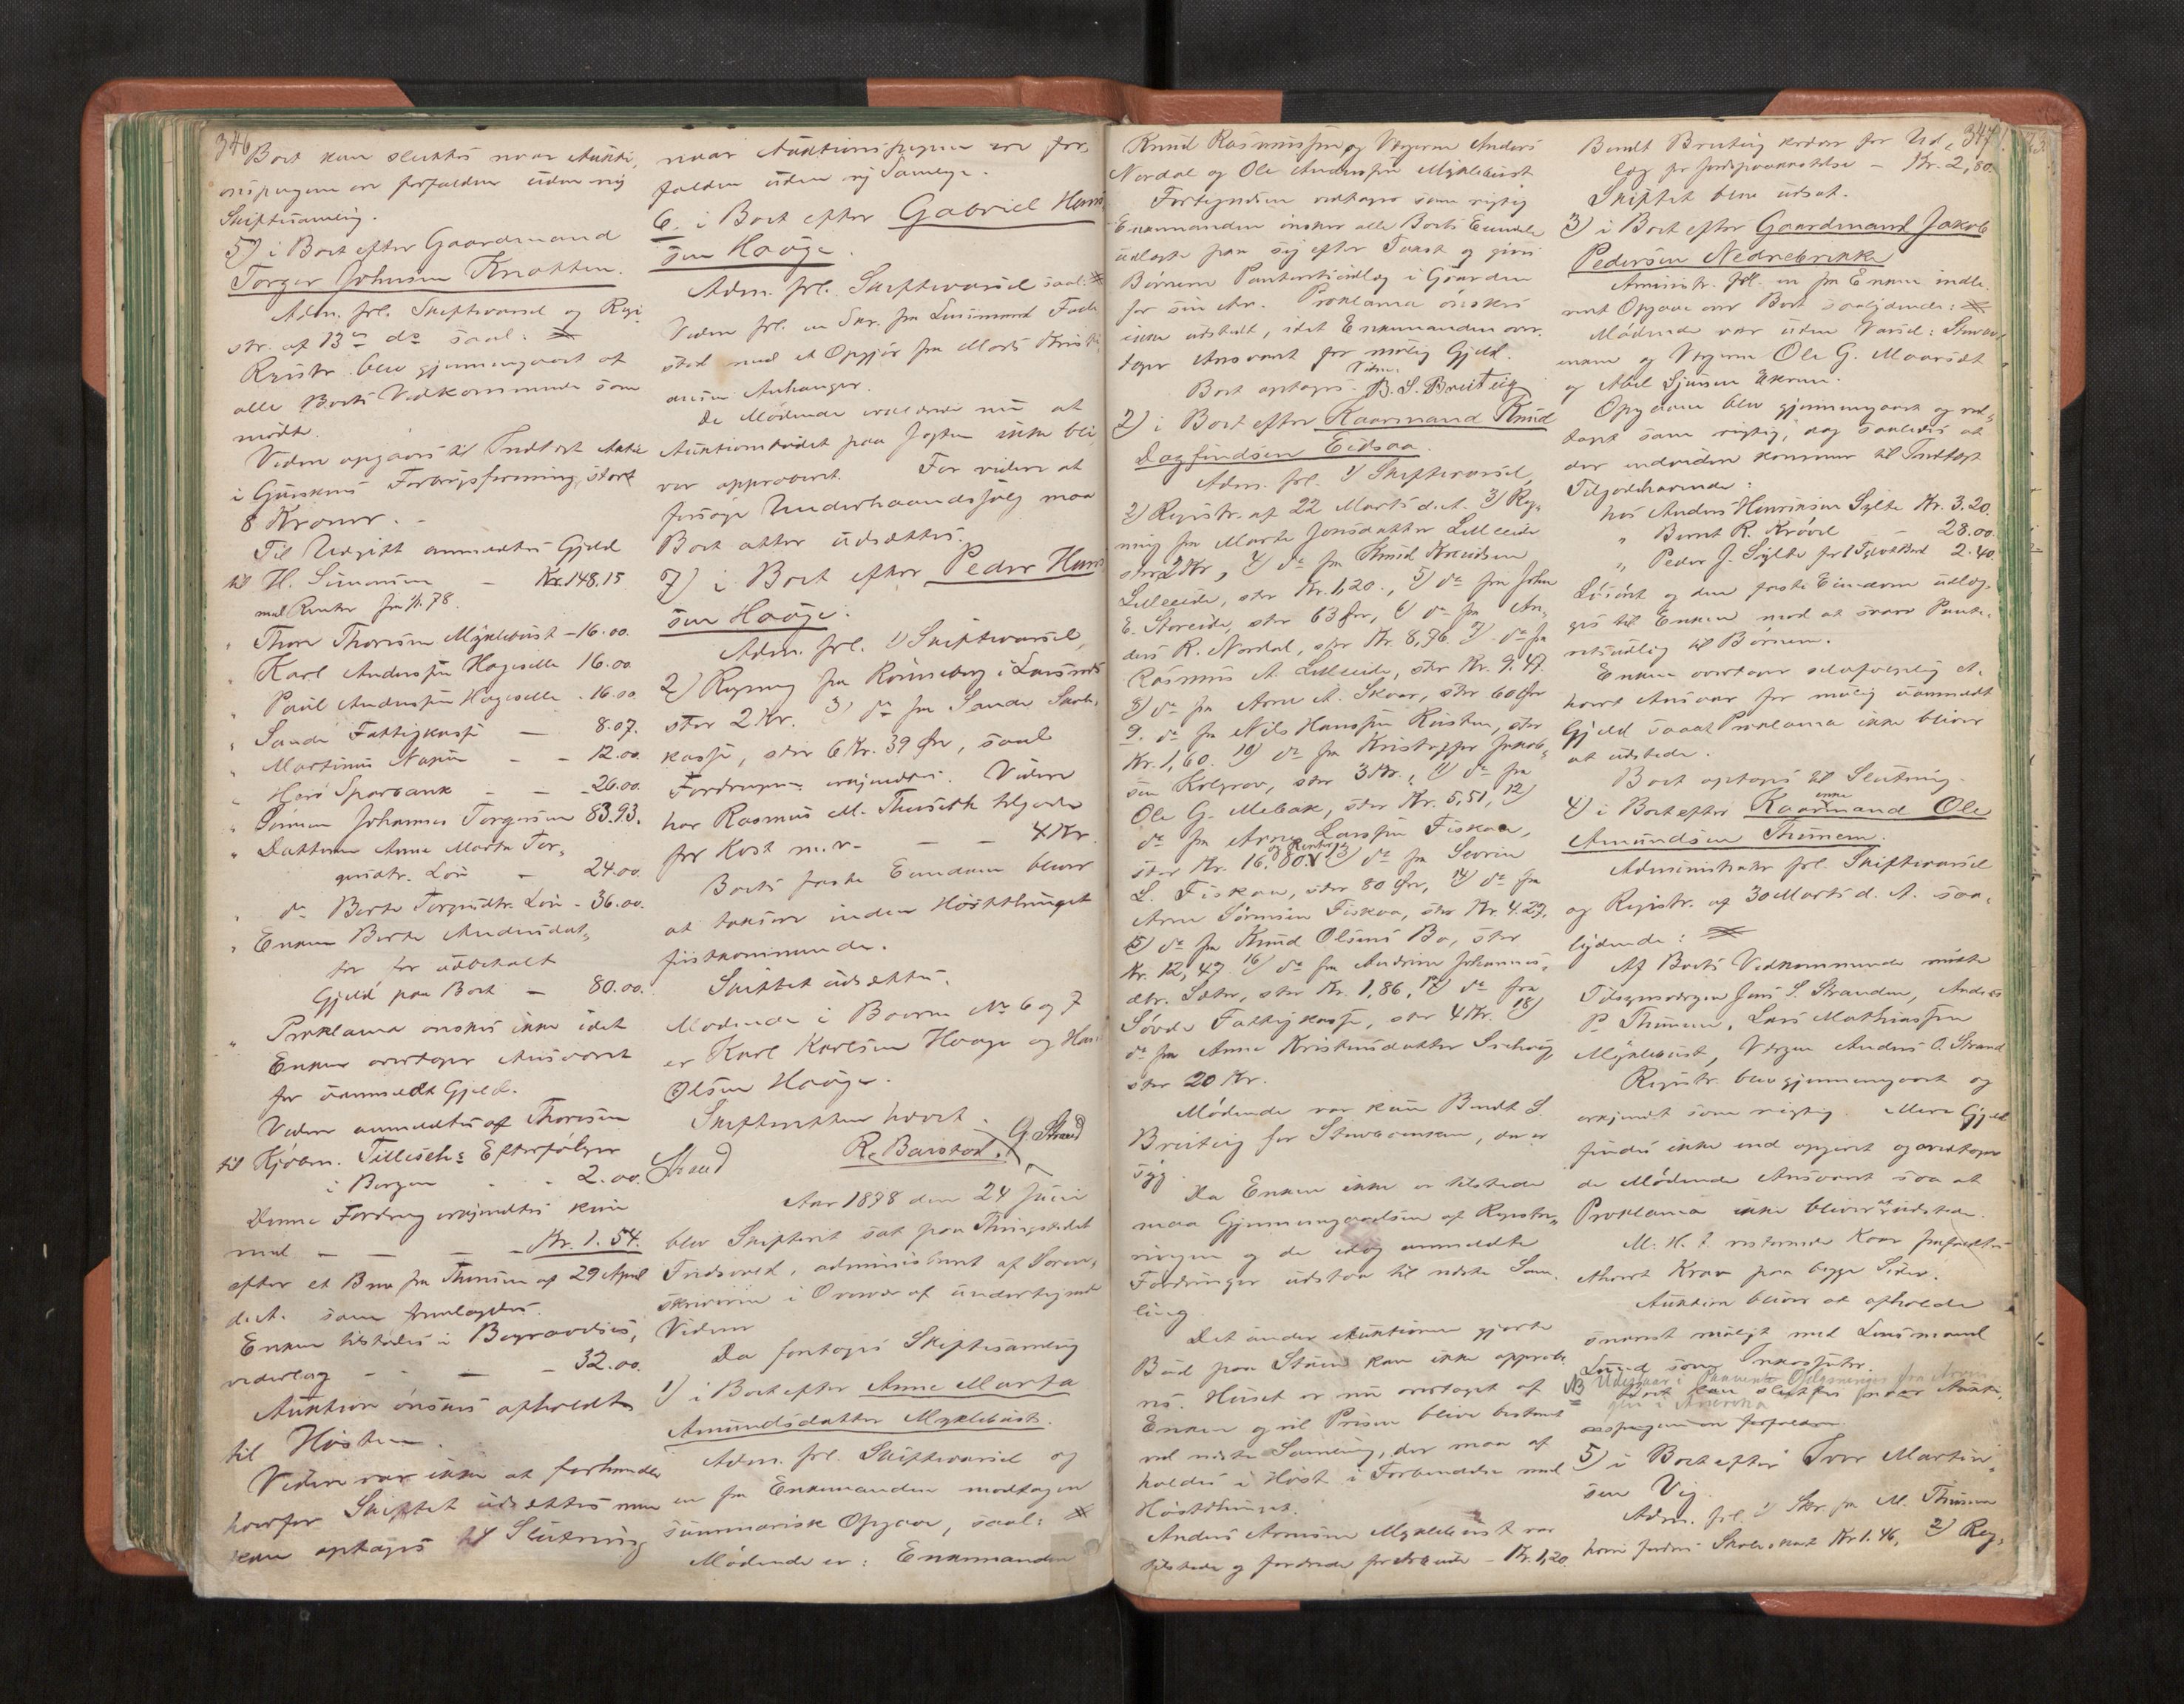 346
Boet kan sluttes naar Aukti
onspengene er forfaldne uden ny
Skiftesamling.
5) i Boet efter Gaardmand
Torger Johnsen Knotten.
Adm. frl. Skiftevarsel og Regi
str. af 13de ds saal:
Registr. blev gjennemgaaet af
alle Boets Vedkommende som
mødte.
Videre opgaves til Indtægt Aktie
i Gurskens Forbrugsforening, stor
8 Kroner. -
Til Udgift anmeldtes Gjeld
til H. Simonsen - Kr. 148.15
med Renter fra 1/1. 78.
" Thore Thoresen Myklebust - 16.00.
" Karl Anderssen Hageselle 16.00
" Paul Anderssen Hageselle - 16.00
" Sande Fattigkasse - 8.07.
" Martinus - - 12.00
" Herø Sparbank - - - 26.00.
" Sønnen Johannes Torgersen 83.93.
" Datteren Anne Marte Tor-
gersdtr. Løn - 24.00
" ds Berte Torgersdtr. Løn - 36.00.
" Enken Berte Andersdat-
ter for udbetalt
Gjeld paa Boet - 80.00.
" Proklama ønskes ikke idet
Enken overtager Ansvaret
for uanmeldt Gjeld.
Videre anmeldtes af Thoresen
til Kjøbm. Tillisch's Efterfølger
i Bergen - - 2.00.
Denne Fordring erkjendtes kun
med - - - - Kr. 1.54.
efter et Brev fra Thoresen af 29 April
d. A. som fremlagdes.
Enken tilstodes i Begravelses-
vederlag - - - 32.00.
Auktion ønskes afholdt
til Høsten.
Videre var ikke at forhandle
hvorfor Skiftet udsættes men
kan optages til Slutning
naar Auktionspengene ere for-
faldne uden ny Samling.
6. i Boet efter Gabriel Hans
sen Haage.
Adm. frl. Skiftevarsel saal:
Videre frl. en Skr. fra Lensmand
sted med et Opgjør fra Morts Kristi
ansen Auhanger.
De Mødende erklærede nu at
Auktionsbudet paa Jagten ikke ble
ver approberet. For videre at
forsøge Underhaandssalg maa
Boet atter udsættes.
7) i Boet efter Peder Hans
sen Haage.
Adm. frl. 1) Skiftevarsel,
2) Regning fra Rønneberg i Larsnes
stor 2 Kr. 3) ds fra Sande Skole-
kasse, stor 6 Kr. 39 Øre, saal
Fordringerne erkjendtes. Videre
har Rasmus M. Thuseth tilgode
for Kost m.v. - - 4 Kr.
Boets faste Eiendom bliver
at taxere inden Høstthinget
førstkommende.
Skiftet udsættes.
Mødende i Boerne No 6 og 7
er Karl Karlsen Haage og Hans
Olsen Haage.
Skifteretten hævet.
Strand R. Barstad. G. Strand
Aar 1878 den 24 Juni
blev Skifteret sat paa Thingstedet
Tredsvold, administreret af Soren-
skriveren i Overvær af undertegnede
Vidner
Da foretages Skiftesamling
1) i Boet efter Anne Marta
Amundsdatter Myklebust.
Adm. frl. Skiftevarsel og
en fra Enkemanden modtagen
summarisk Opgave, saal:
Mødende er: Enkemanden
Knud Rasmussen og Vergerne Anders
Nordal og Ole Anderssen Myklebust
Fortegnelsen vedtages som rigtig
Enkemanden ønsker alle Boets Eiendele
udlagte paa sig efter Taxst og give
Børnene Panteretsudlæg i Gaarden
for sin Arv. Proklama ønskes
ikke udstedt, idet Enkemanden over-
tager Ansvaret for mulig Gjeld.
Vidne:
Boet optages. B. S. Breiteig
2) i Boet efter Kaarmand Knud
Dagfindsen Eidsaa.
Adm. frl. 1) Skiftevarsel,
2) Registr. af 22 Marts d. A. 3) Reg-
ning fra Marte Jonsdatter Lilleeide
stor 2 Kr, 4) ds fra Knud Knudsen
Lilleeide, stor Kr. 1,20., 5) ds fra John
E. Storeide, stor 63 Øre, 6) ds fra An-
ders R. Nordal, stor Kr. 8,76. 7) ds fra
Rasmus A. Lilleeide, stor Kr. 9.47.
8) ds fra Arne A. Skaar, stor 60 Øre
9. ds fra Nils Hanssen Reisten, stor
Kr. 1,60. 10) ds fra Kristoffer Jakob-
sen Kolgrov, stor 3 Kr., 11) ds fra
Ole G. Mebak, stor Kr. 5,51, 12)
ds fra Arne Larssen Fiskaa,
stor Kr. 16.80 og Renter 13) ds fra Severin
L. Fiskaa, stor 80 Øre, 14) ds fra
Arne Sørensen Fiskaa, stor Kr. 4.29.
15) ds fra Knud Olsens Bo, stor
Kr. 12,47. 16) ds fra Andrine Johannes-
dtr. Sæter, stor Kr. 1,86, 17) ds fra
Søvde Fattigkasse, stor 4 Kr. 18)
ds fra Anne Kristensdatter
stor 20 Kr.
Mødende var kun Berndt S.
Breiteig for Stervboenken, der er
syg.
Da Enken ikke er tilstede
maa Gjennemgaaelsen af Registre-
ringen og de idag anmeldte
Fordringer udstaa til næste Sam-
ling
Det under Auktionen gjorte
Bud paa Stuen kan ikke approbe-
res. Huset er nu overtaget af
Enken og vil Prisen blive bestemt
ved næste Samling, der maa af
holdes i Høst i Forbindelse med
Høstthinget.
Anders Arnesen Myklebust var
tilstede og fordrede for Arbeide - Kr. 1,20.
347
Berndt Breiteig kræver for Ud-
læg for Jordpaakastelse - Kr. 2,80.
Skiftet blev udsat.
3) i Boet efter Gaardmand Jakob
Pedersen Nedrebrekke
Aministr. frl. en fra Enken indle-
veret Opgave over Boet saalydende:
Mødende var uden Varsel: Stervbo-
enken og Vergerne Ole G. Maarsdt
og Abel Sjursen Ekrem.
Opgaven blev gjennemgaaet og ved-
taget som rigtig, dog saaledes at
der endvidere kommer til Indtægt
Tilgodehavende:
hos Anders Henriksen Sylte Kr. 3.20.
" Bernt R. Krøvel - 28.00.
" Peder J. Sylte for 1 Tylvt Bord 2.40.
Løsøret og den faste Eiendom udlæg-
ges til Enken mod at svare Pante-
retsudlæg til Børnene.
Enken overtager selvfølgelig et-
hvert Ansvar for mulig uanmeldt
Gjeld saaat Proklama ikke bliver
at udstede.
Boet optages til Slutning.
4) i Boet efter Kaarmand enke Ole
Amundsen Thunem.
Administrator frl. Skiftevarsel
og Registr. af 30 Marts d. A. saa-
lydende:
Af Boets Vedkommende mødte
Tilsynsvergen Jens S. Stranden, Anders
P. Thunem, Lars Mathiassen
Myklebust, Vergen Anders O. Strand
Registr. blev gjennemgaaet og
erkjendt som rigtig. Mere Gjeld
findes ikke end opgivet og overtager
de Mødende Ansvaret saa at
Proklama ikke bliver at udstede.
M. H. t. resterende Kaar frafaldtes
ethvert Krav paa begge Sider.
Auktion bliver at afholde
snarest muligt med Lensmand
Lund som Inkassator.
NB Udestaar i Paavente Oplysninger fra Arvin
Boet kan sluttes naar Aukti-
gen i Amerika
onspengene er forfaldne.
5) i Boet efter Iver Martin-
sen Vig.
Adm. frl. 1) Skr. fra M. Thunem
hvori fordres Skoleskat Kr 1.46, 2) Reg-